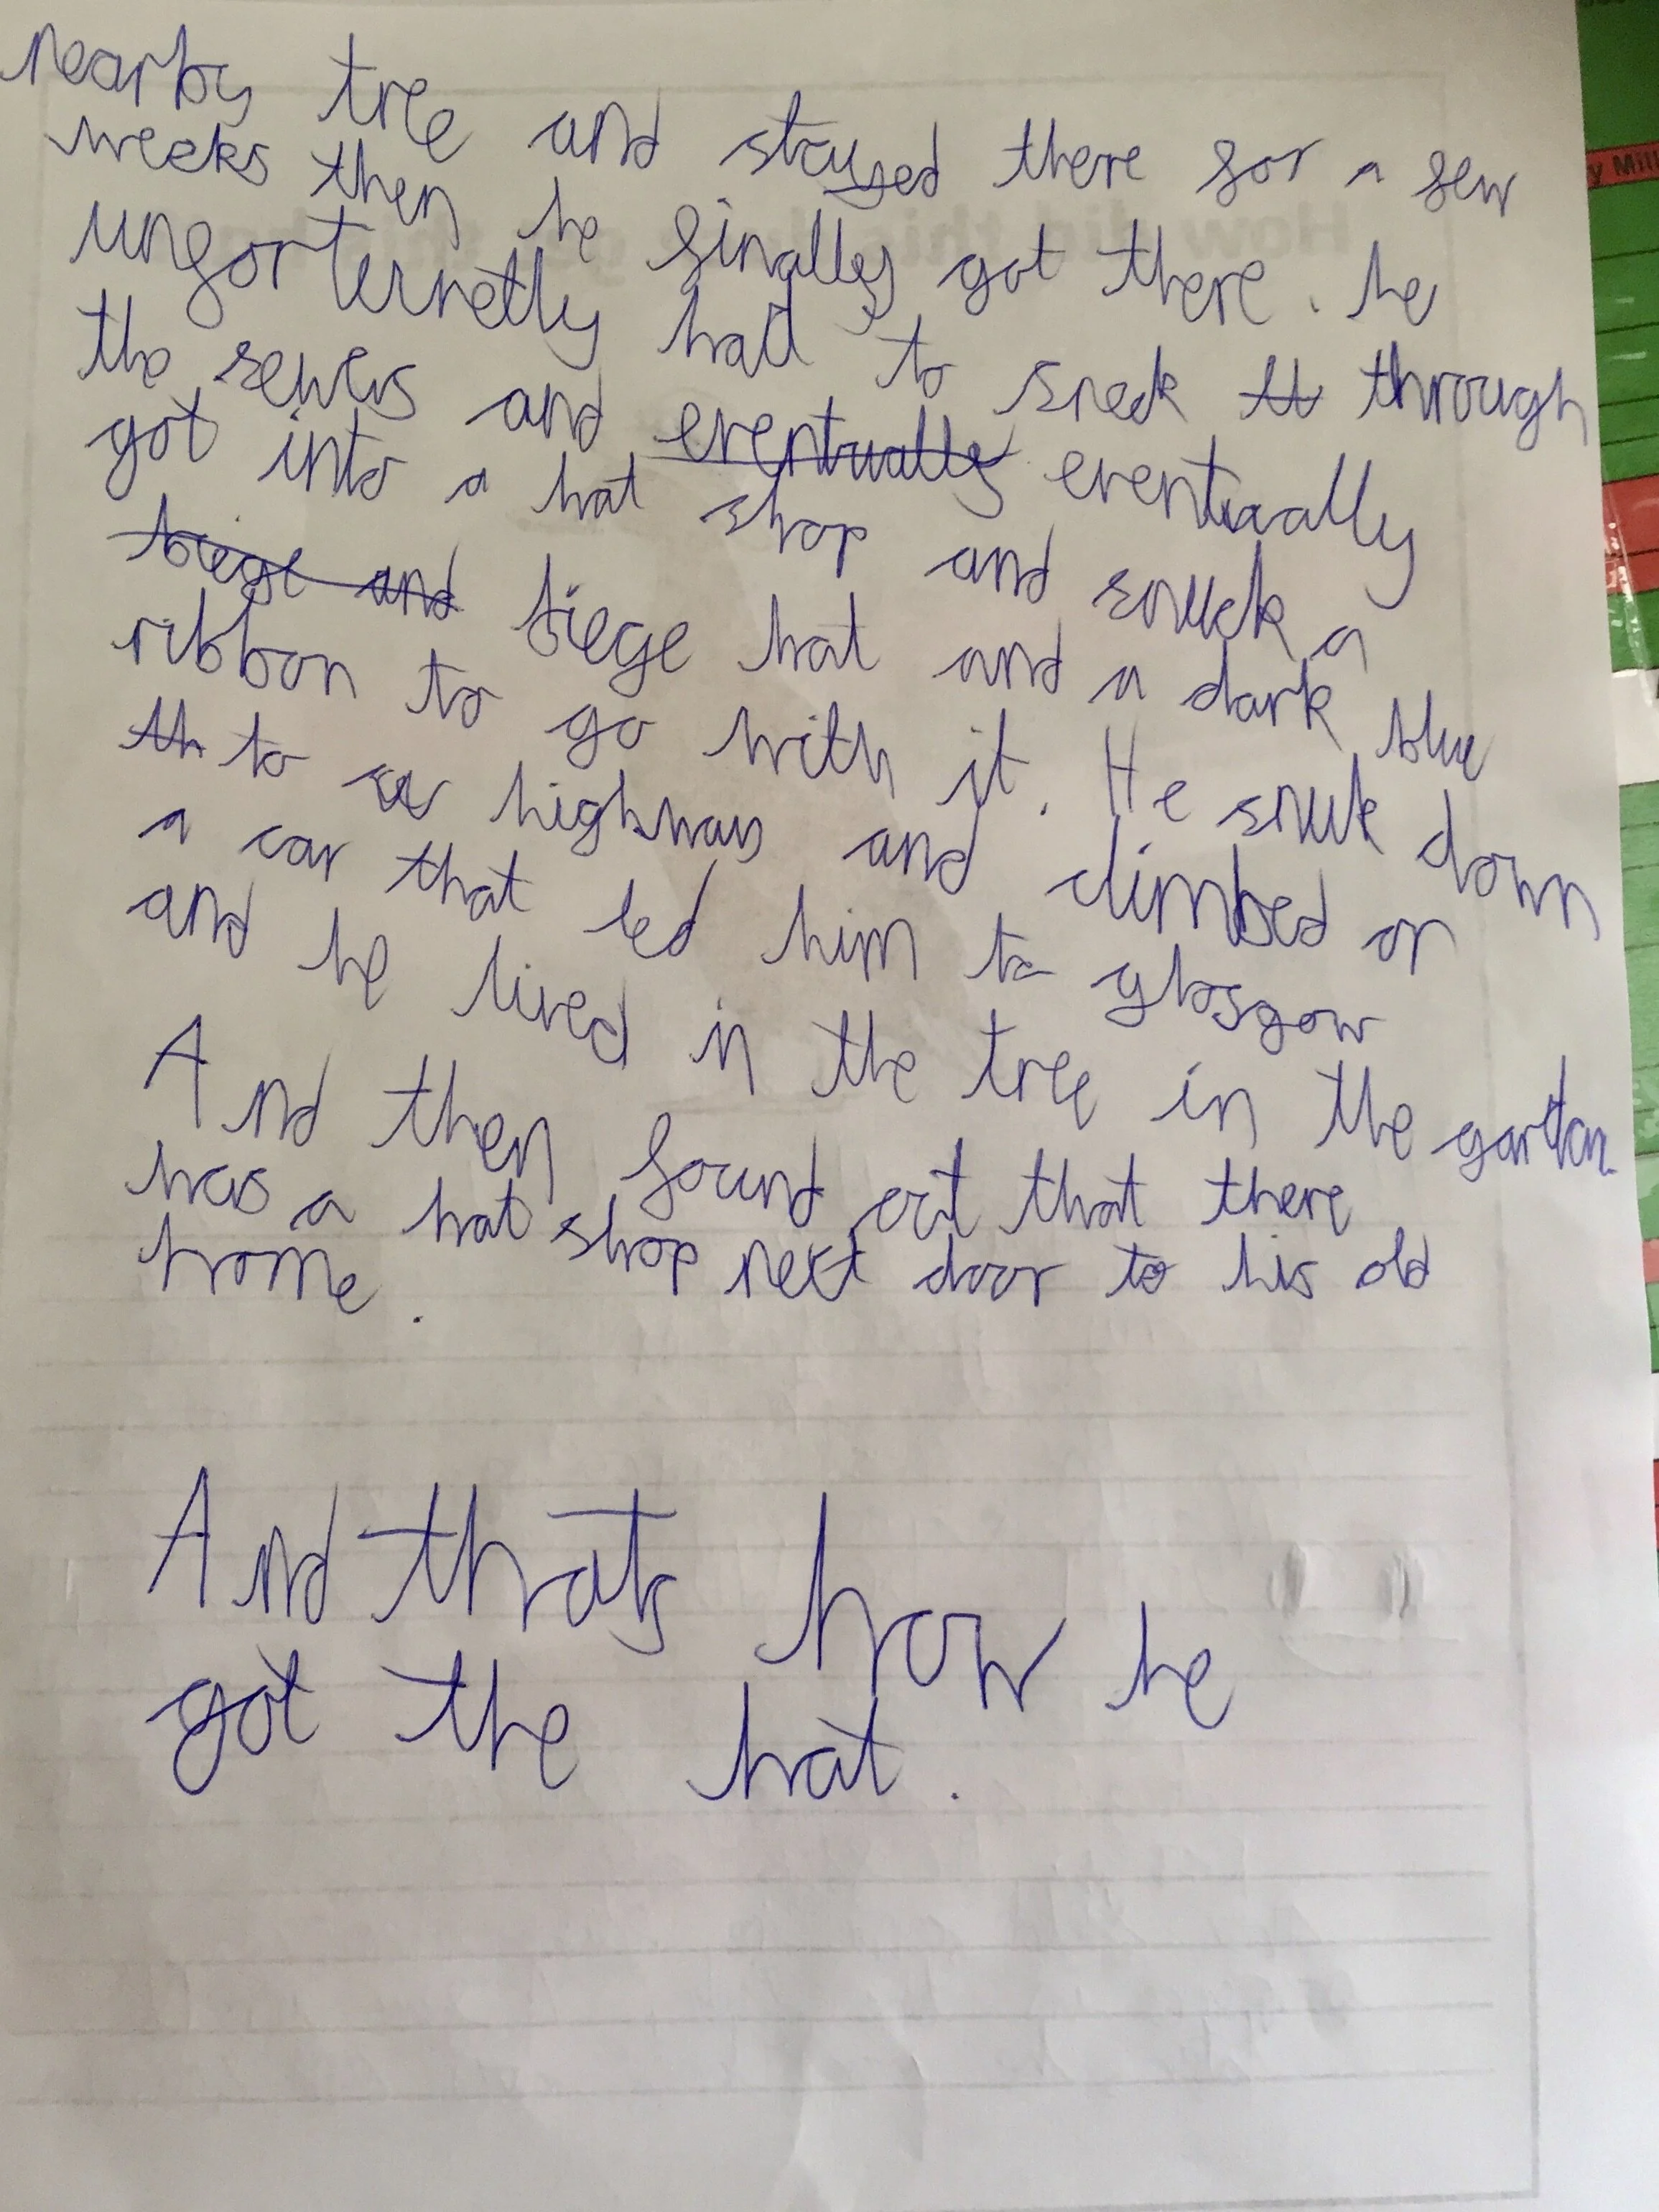 nearby tree and stayed there for a few
weeks then he finally got there. he
unforternetly had to sneek tt through
the sewers and eventually eventually
got into a hat shop and snuck a
biege and biege hat and a dark blue
ribbon to go with it. He snuk down
th to a highway and climbed on
a car that led him to glosgow
and he lived in the tree in the garden
And then found out that there
was a hat shop next door to his old
home.
And thats how he
got the hat.
How did this
y Mill